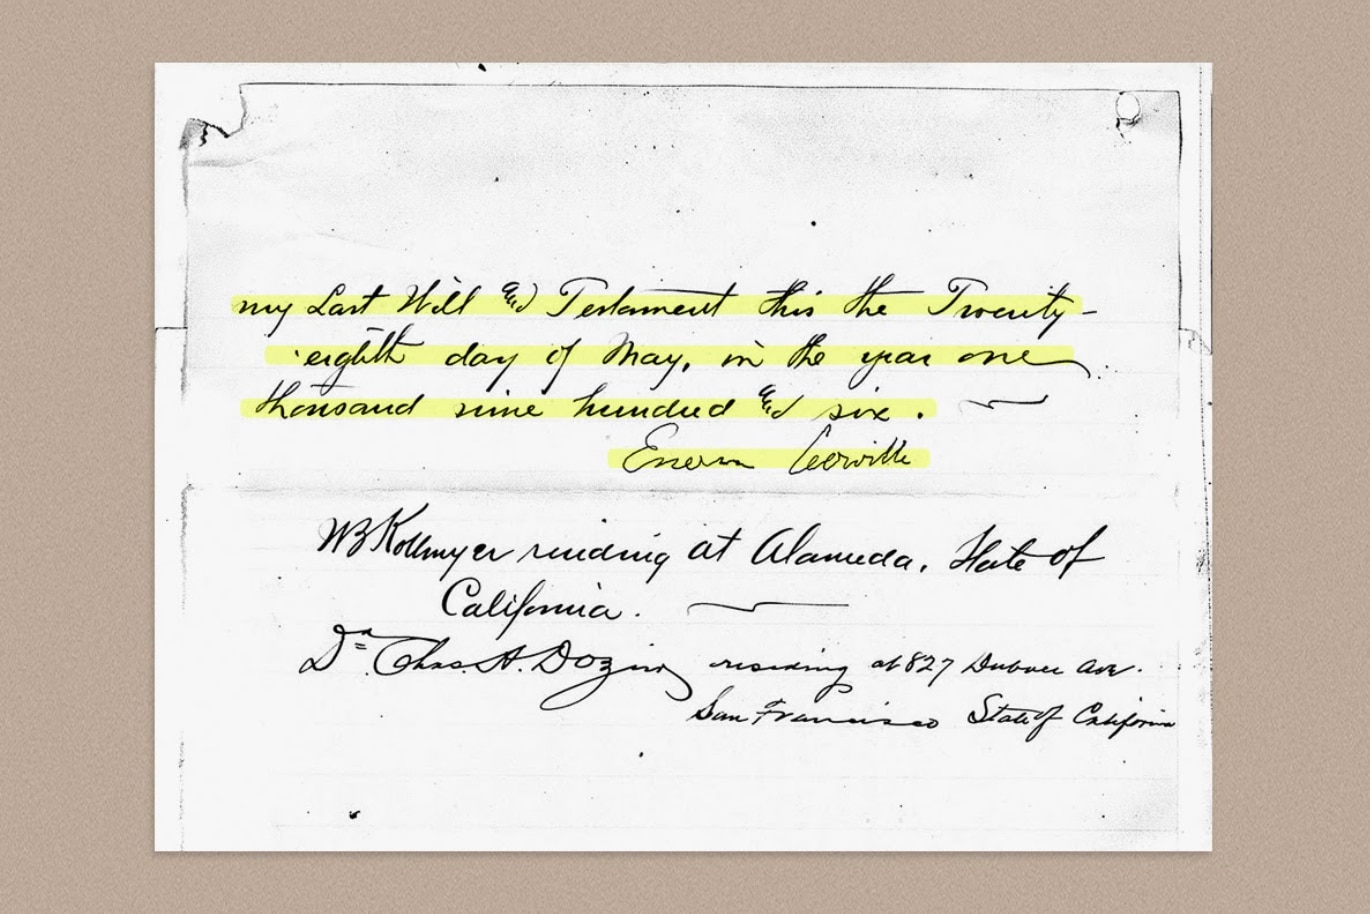 my Last Will and Testament this the Twenty-
eighth day of May, in the year one
thousand nine hundred and six.
W B Kollmyer residing at Alameda, State of
California.
Dr. Chas. A. Dozier residing at 827 Dubuce Ave.
San Francisco State of California